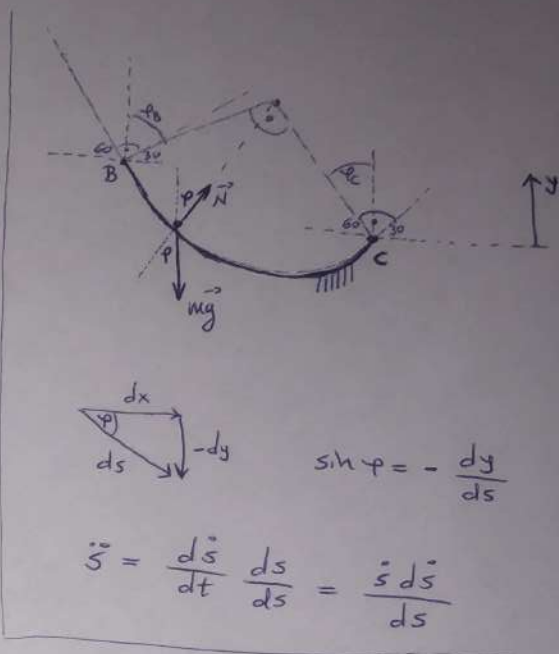 φB
60 30
B
φ N⃗
φ
mg⃗
φC
60 30
C
y
dx
φ
ds
-dy
sin φ = - dy/ds
s̈ = dṡ/dt ds/ds = ṡ dṡ/ds